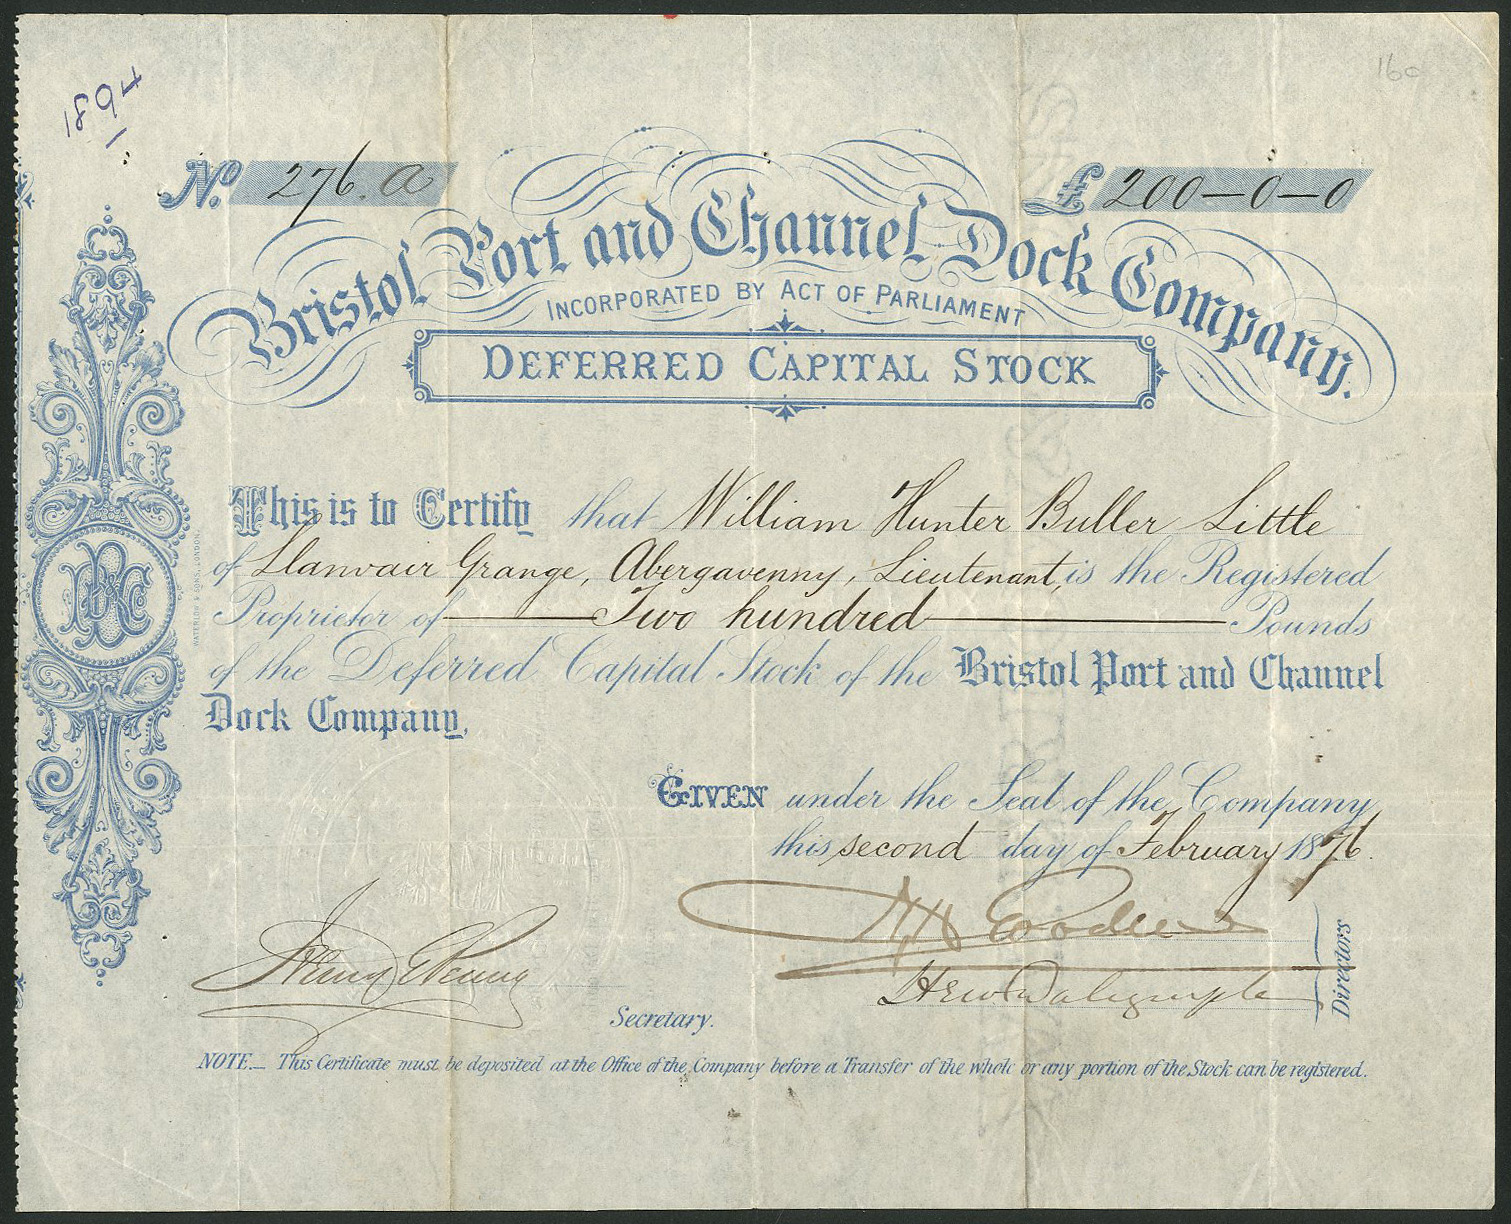 1894
160
No. 276.a
£ 200-0-0
Bristol Port and Channel Dock Company.
INCORPORATED BY ACT OF PARLIAMENT
DEFERRED CAPITAL STOCK
This is to Certify that William Hunter Buller Little
of Llanvair Grange, Abergavenny, Lieutenant, is the Registered
Proprietor of Two hundred Pounds
of the Deferred Capital Stock of the Bristol Port and Channel
Dock Company.
GIVEN under the Seal of the Company
this second day of February 1876.
Hew Dalrymple
Directors
Secretary.
NOTE.— This Certificate must be deposited at the Office of the Company before a Transfer of the whole or any portion of the Stock can be registered.
WATERLOW & SONS, LONDON.